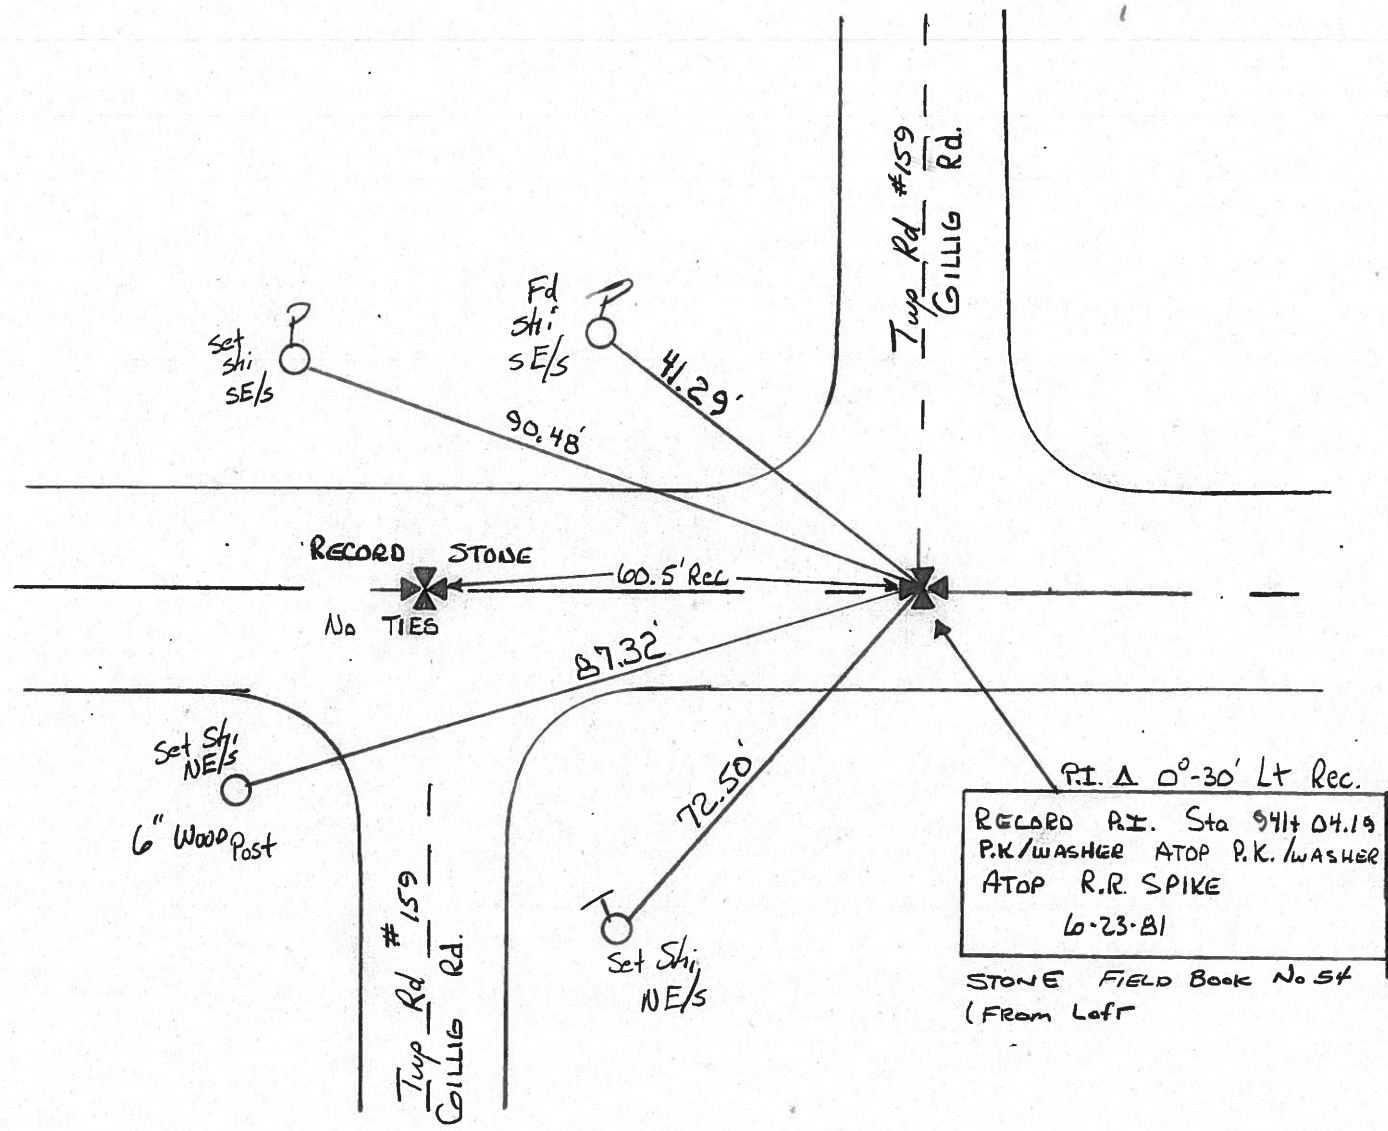 Twp Rd #159
GILLIG Rd.
P
Set
Shi
SE/s
Fd
Shi
SE/s
P
41.29'
90.48'
RECORD STONE
60.5' Rec
No TIES
87.32'
Set Shi
NE/s
6" WOOD Post
72.50'
T
Set Shi
NE/s
Twp Rd # 159
GILLIG Rd.
P.I. Δ 0°-30' Lt Rec.
RECORD P.I. Sta 941+04.19
P.K/WASHER ATOP P.K./WASHER
ATOP R.R. SPIKE
6-23-81
STONE FIELD BOOK No 54
(FROM Loft